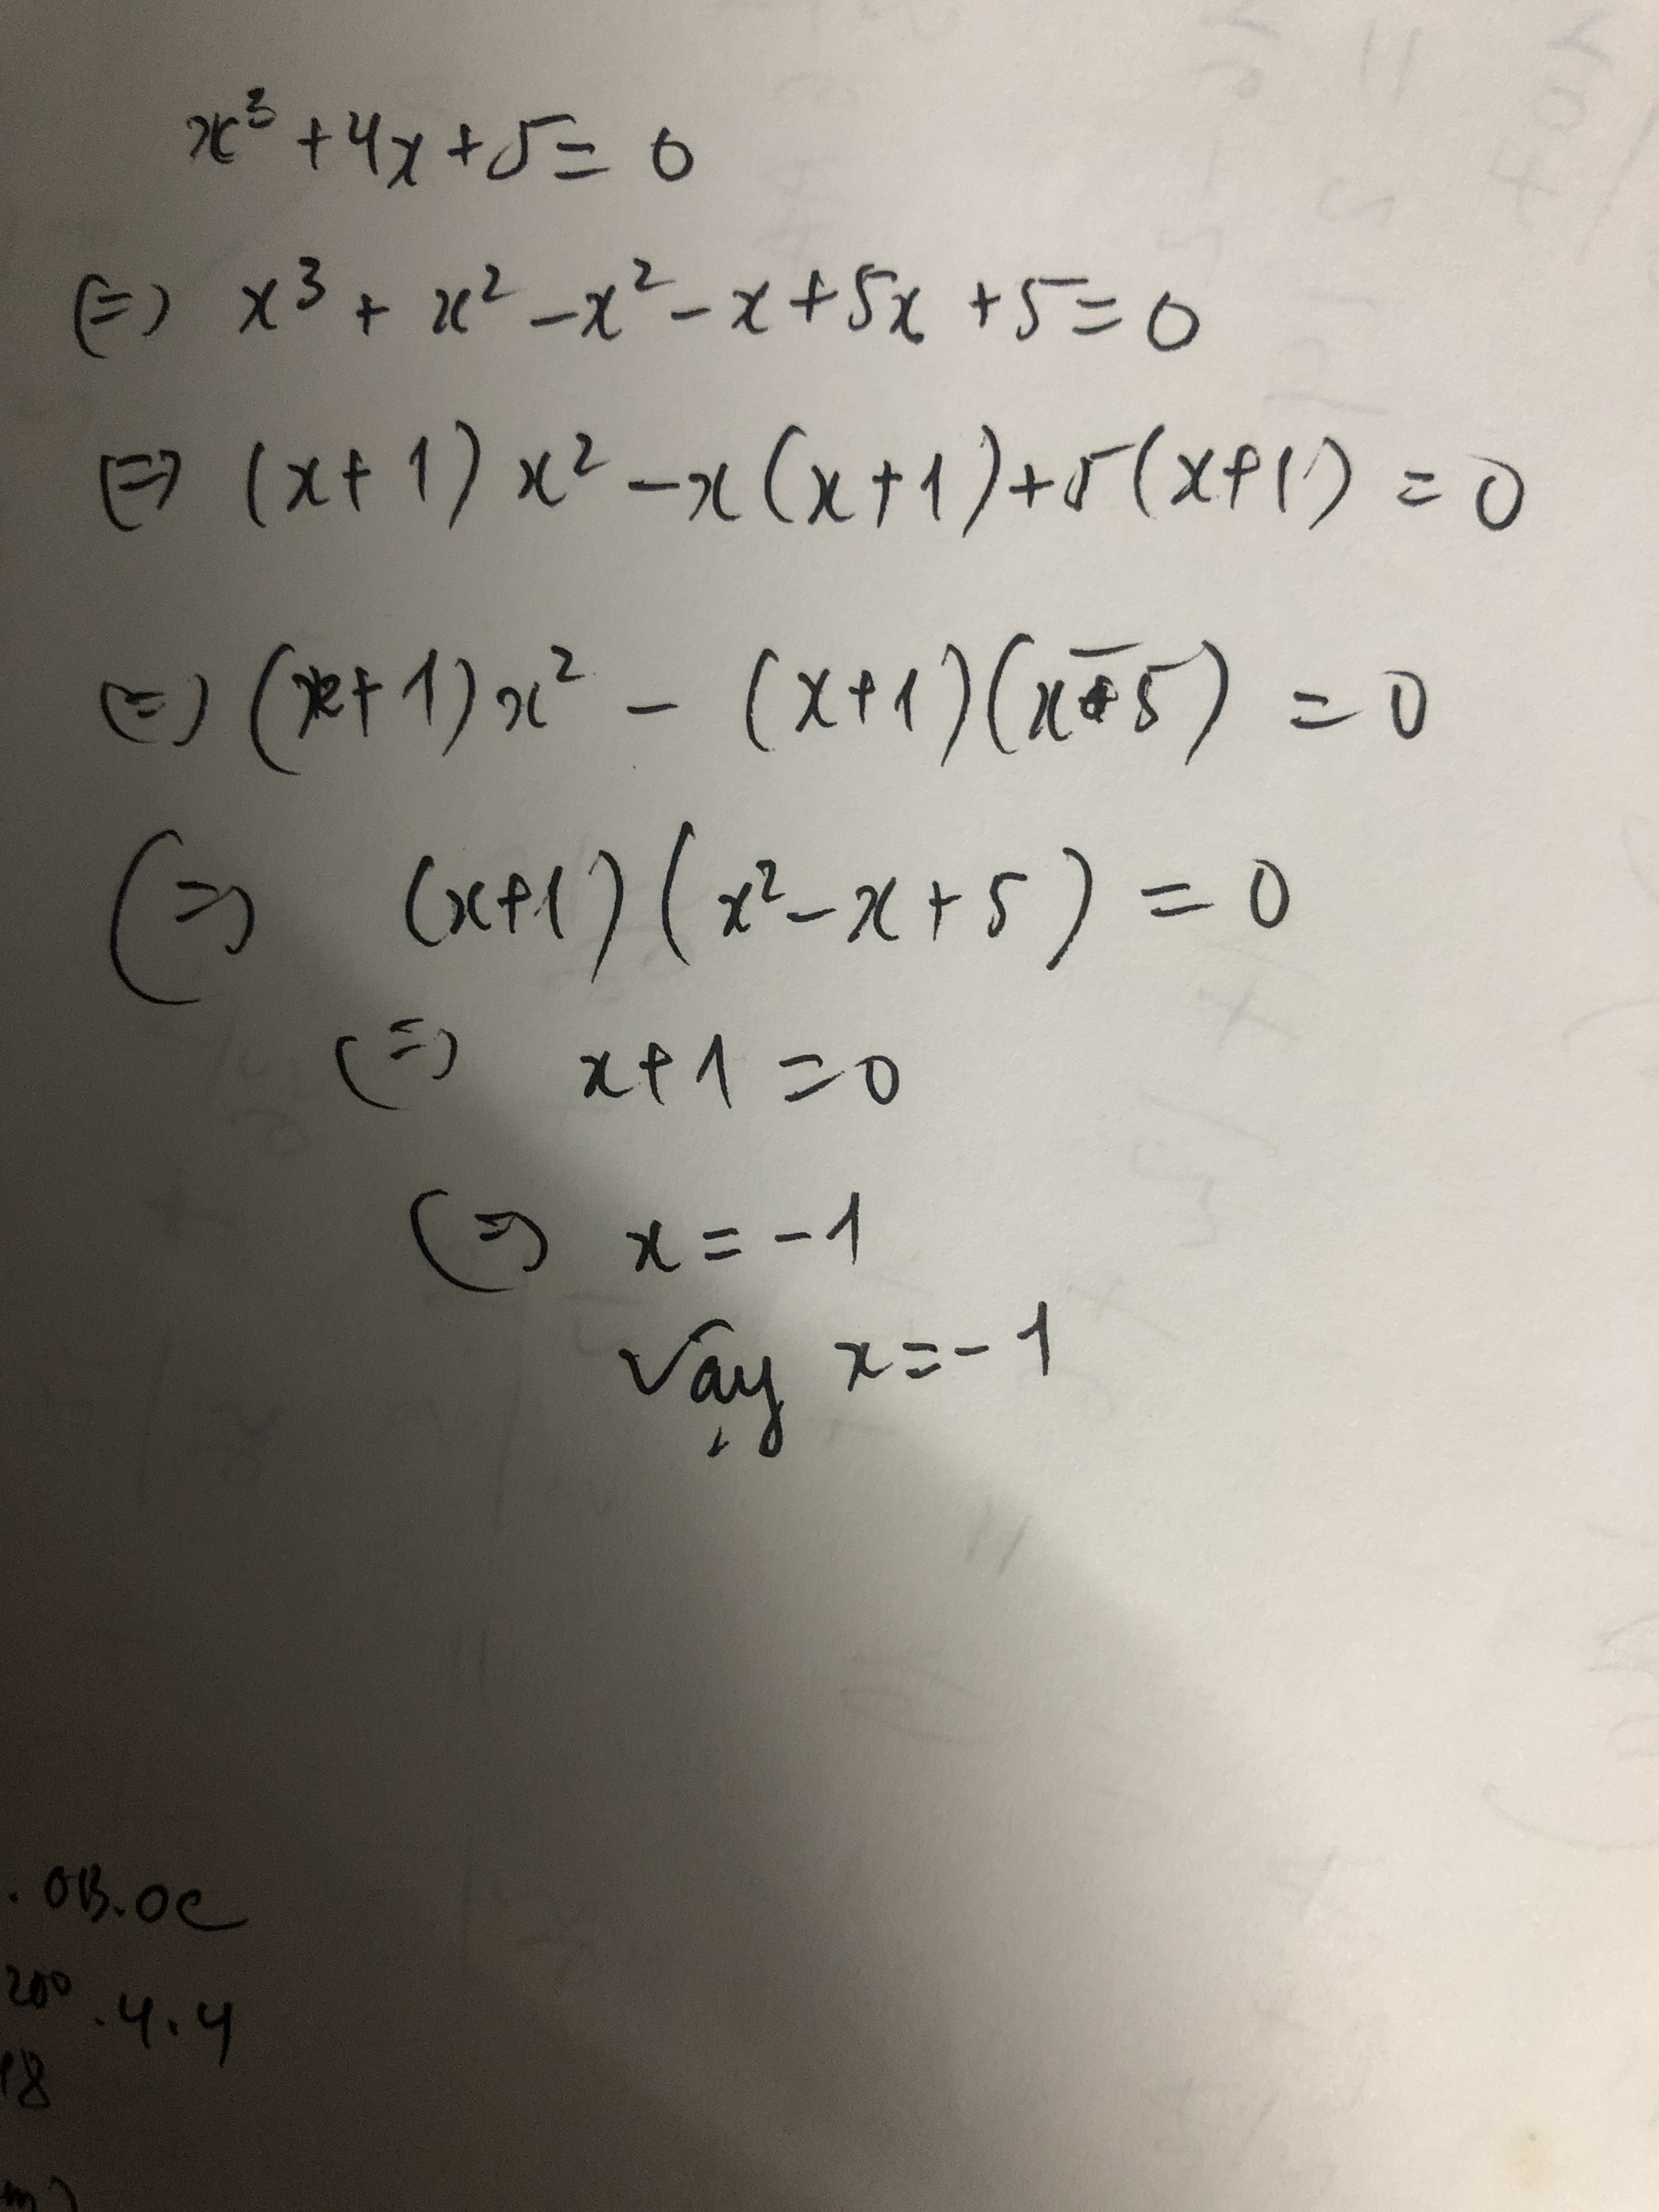 x³ + 4x + 5 = 0
(=) x³ + x² - x² - x + 5x + 5 = 0
(=) (x+1) x² - x(x+1) + 5(x+1) = 0
(=) (x+1)x² - (x+1)(x-5) = 0
(=) (x+1)(x² - x + 5) = 0
(=) x+1 = 0
(=) x = -1
Vạy x = -1
. OB.OC
20° .4.4
18
m)